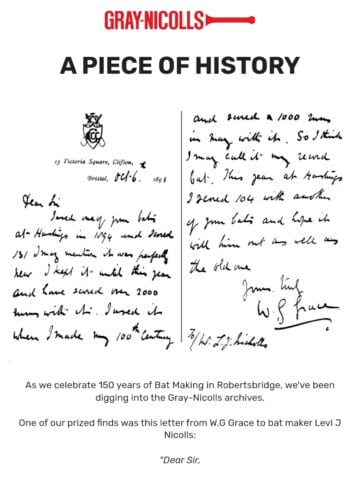 GRAY-NICOLLS
A PIECE OF HISTORY
13 Victoria Square, Clifton,
Bristol, Oct. 6
Dear Sir
I used one of your bats
at Hastings in 1894 and scored
131 I may mention it was perfectly
new I kept it until this year
and have scored over 2000
runs with it. I used it
when I made my 100th Century
and scored a 1000 runs
in May with it. So I think
I may call it my record
bat. This year at Hastings
I scored 104 with another
of your bats and hope it
will turn out as well as
the old one
Yours truly
W. G Grace
To/ Mr. L. J. Nicolls
As we celebrate 150 years of Bat Making in Robertsbridge, we've been
digging into the Gray-Nicolls archives.
One of our prized finds was this letter from W.G Grace to bat maker Levi J
Nicolls:
"Dear Sir,